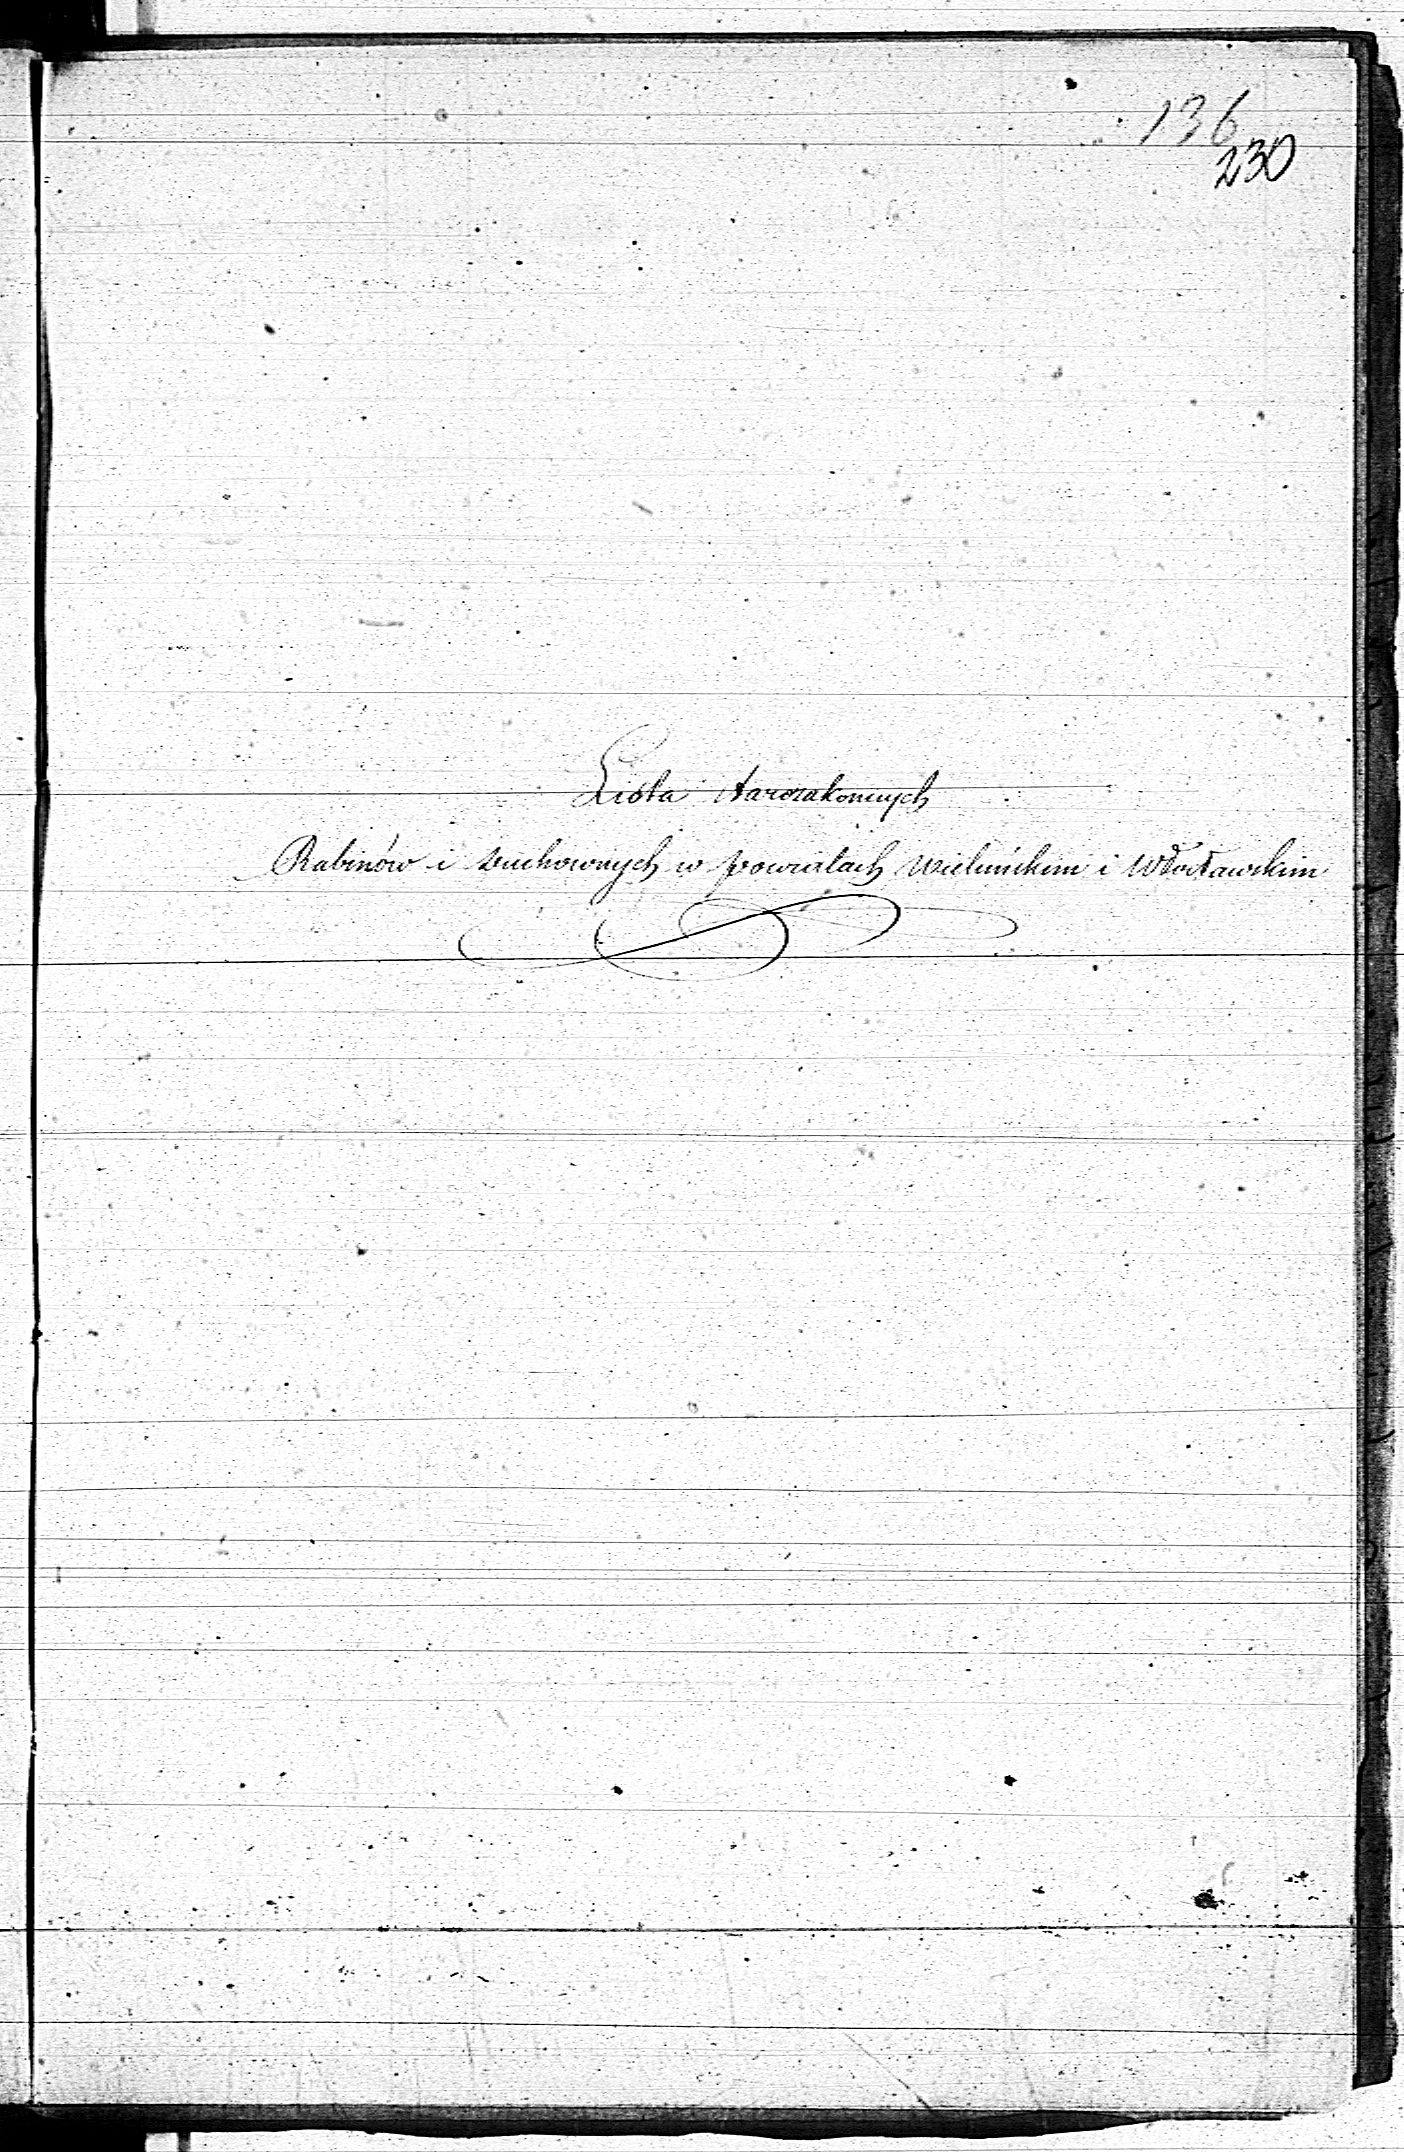 136
230
Lista starozakonnych
Rabinów i duchownych w powiatach wieluńskim i włocławskim